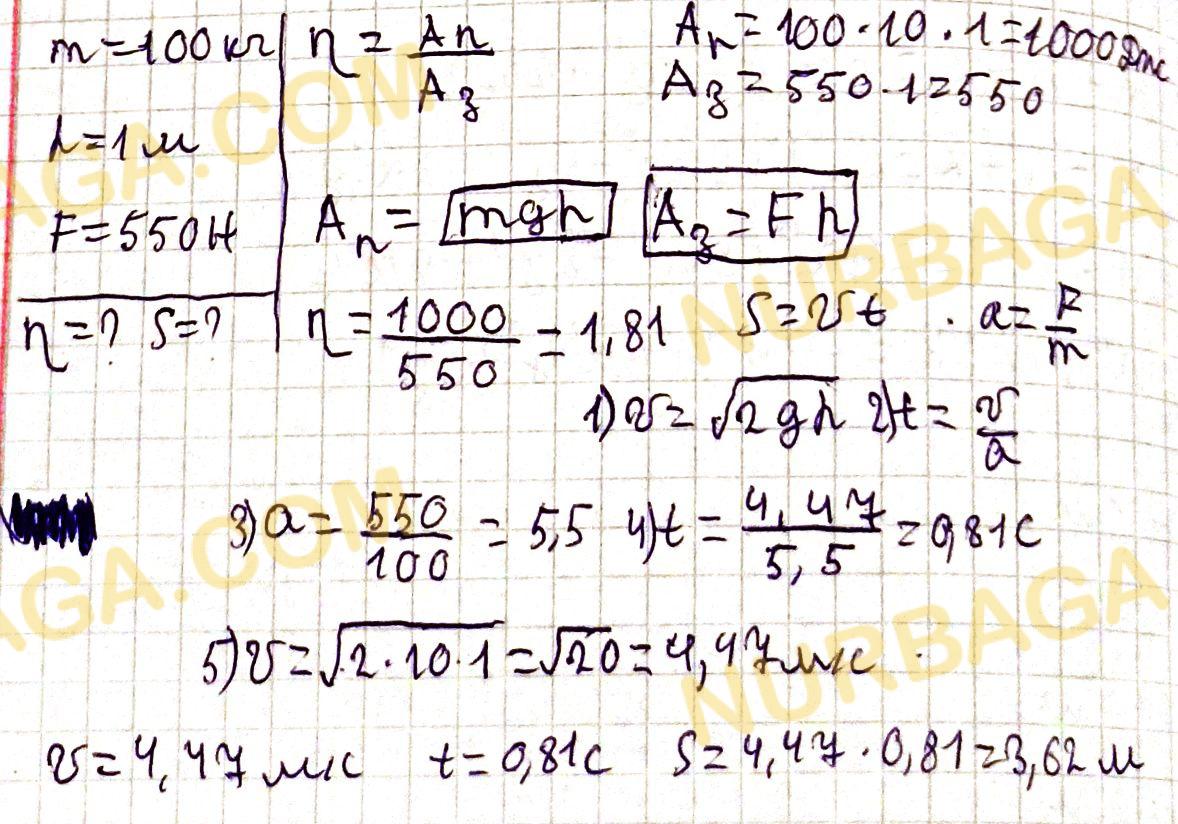 m=100кг η=Aп/Aз Aп=100·10·1=1000Дж
h=1м Aз=550·1=550
F=550Н Aп=mgh Aз=Fh
η=? S=? η=1000/550=1,81 S=υt · a=F/m
1)υ=√2gh 2)t=υ/a
3)a=550/100=5,5 4)t=4,47/5,5=0,81с
5)υ=√2·10·1=√20=4,47м/с
υ=4,47м/с t=0,81с S=4,47·0,81=3,62м
NURBAGA.COM
NURBAGA
NURBAGA.COM
NURBAGA